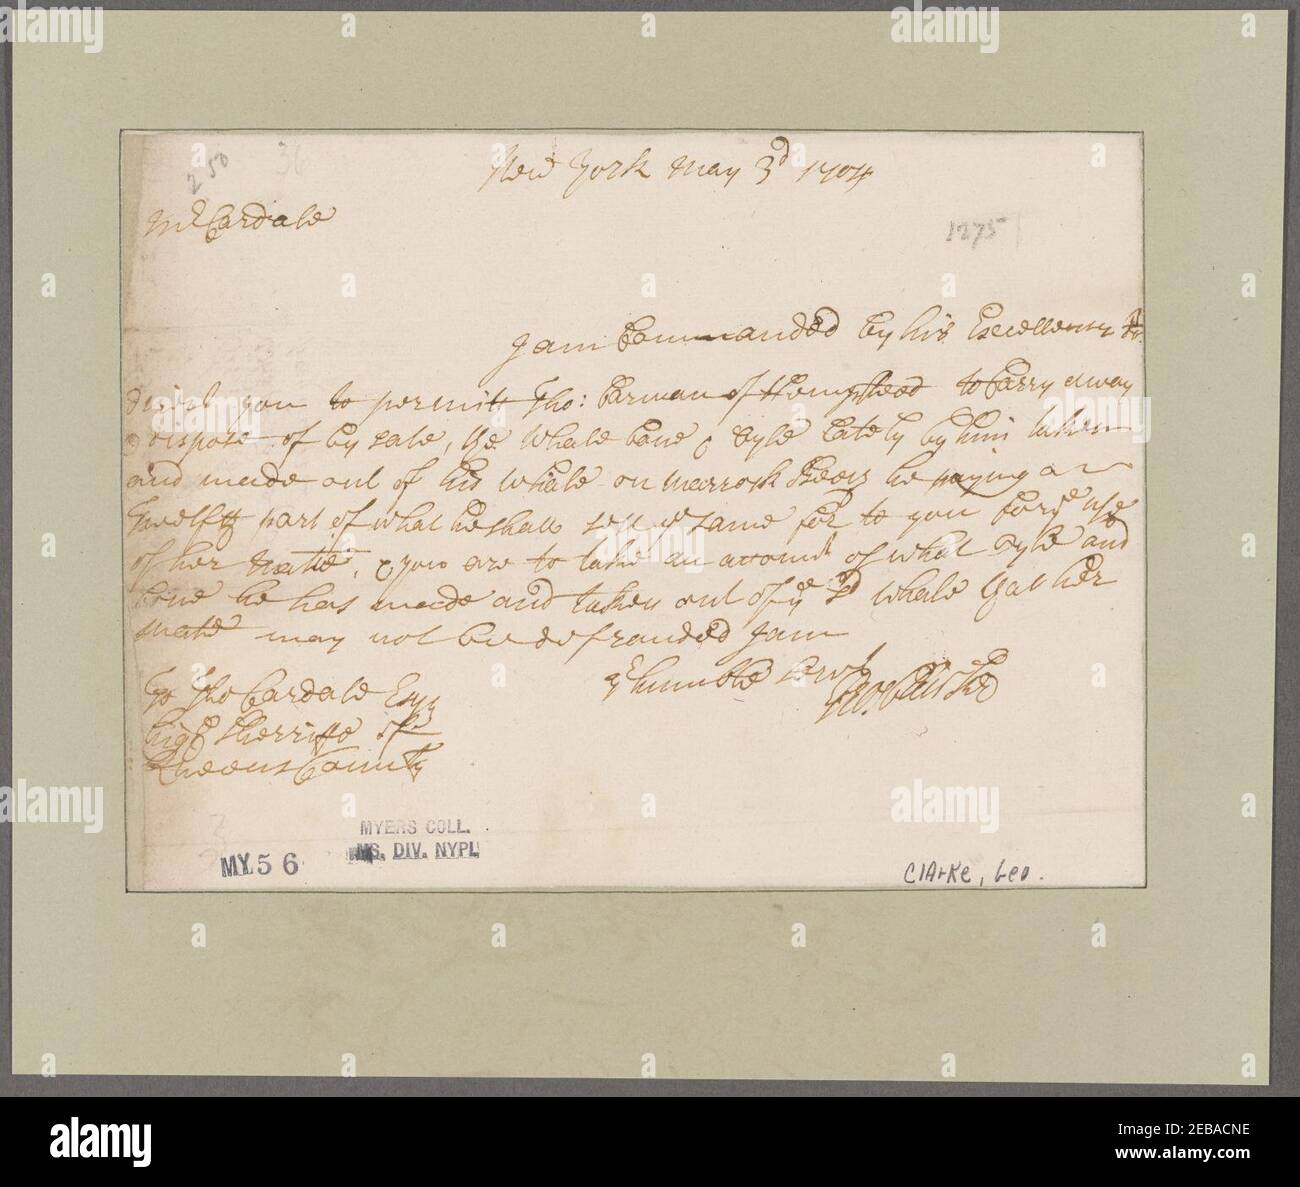 250 36
New York May 3d 1704
Mr Cardale
1275
I am Commanded by his Excellency to
direct you to permitt Tho: Carman of Hempstead to Carry away
dispose of by sale, ye Whale bone & Oyle Lately by him taken
and made out of his Whale on Marrosk Beeg he paying a
Twelfth part of what he shall sell ye same for to you for ye use
of her Matie, & you are to take an account of what Oyle and
bone he has made and taken out of ye Sd Whale that her
Matie may not be defrauded I am
Yr humble Servt
Geo: Clarke
To Tho Cardale Esqr
high Sherriffe of
Queens County
MYERS COLL.
MS. DIV. NYPL
MY56
Clarke, Geo.
alamy
Image ID: 2EBACNE
www.alamy.com